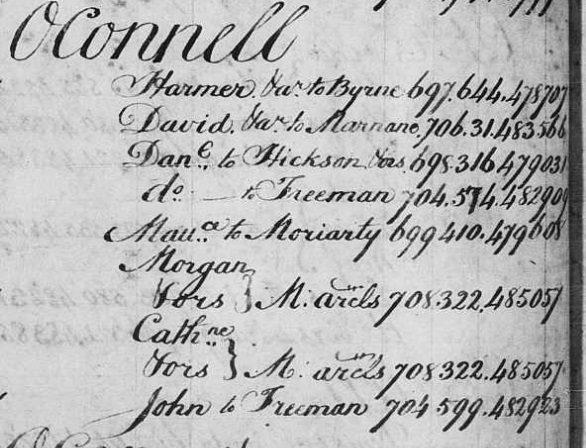 OConnell
Harmer & ar. to Byrne 697.644.478707
David. & ar. to Marnane, 706.31.483566
Dan.l to Hickson & ors 698.316.479031
do. — to Freeman 704.574.482909
Mau.ce to Moriarty 699 410.479608
Morgan
& ors } M: arcls 708322.485057
Cath.ne
& ors } M: arcls 708322.485057
John to Freeman 704 599.482923